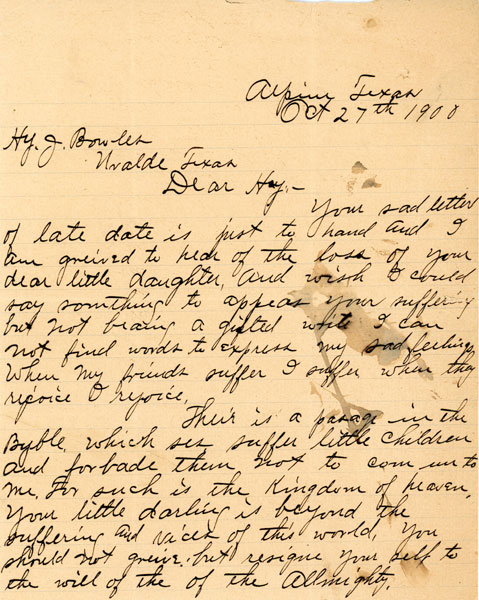 Alpine Texas
Oct 27th 1900
Hy. J. Bowles
Uvalde Texas
Dear Hy:-
Your sad letter
of late date is just to hand and I
am greived to hear of the loss of your
dear little daughter, and wish I could
say somthing to appeas your suffering
but not beaing a gifted write I can
not find words to express my sad feelings
When my friends suffer I suffer when they
rejoice I rejoice.
Their is a pasage in the
Byble, which ses suffer little children
and forbade them not to com un to
me. For such is the Kingdom of heaven,
Your little darling is beyond the
suffering and vaices of this world, You
should not greive. but resigne your self to
the will of the of the Allmighty.